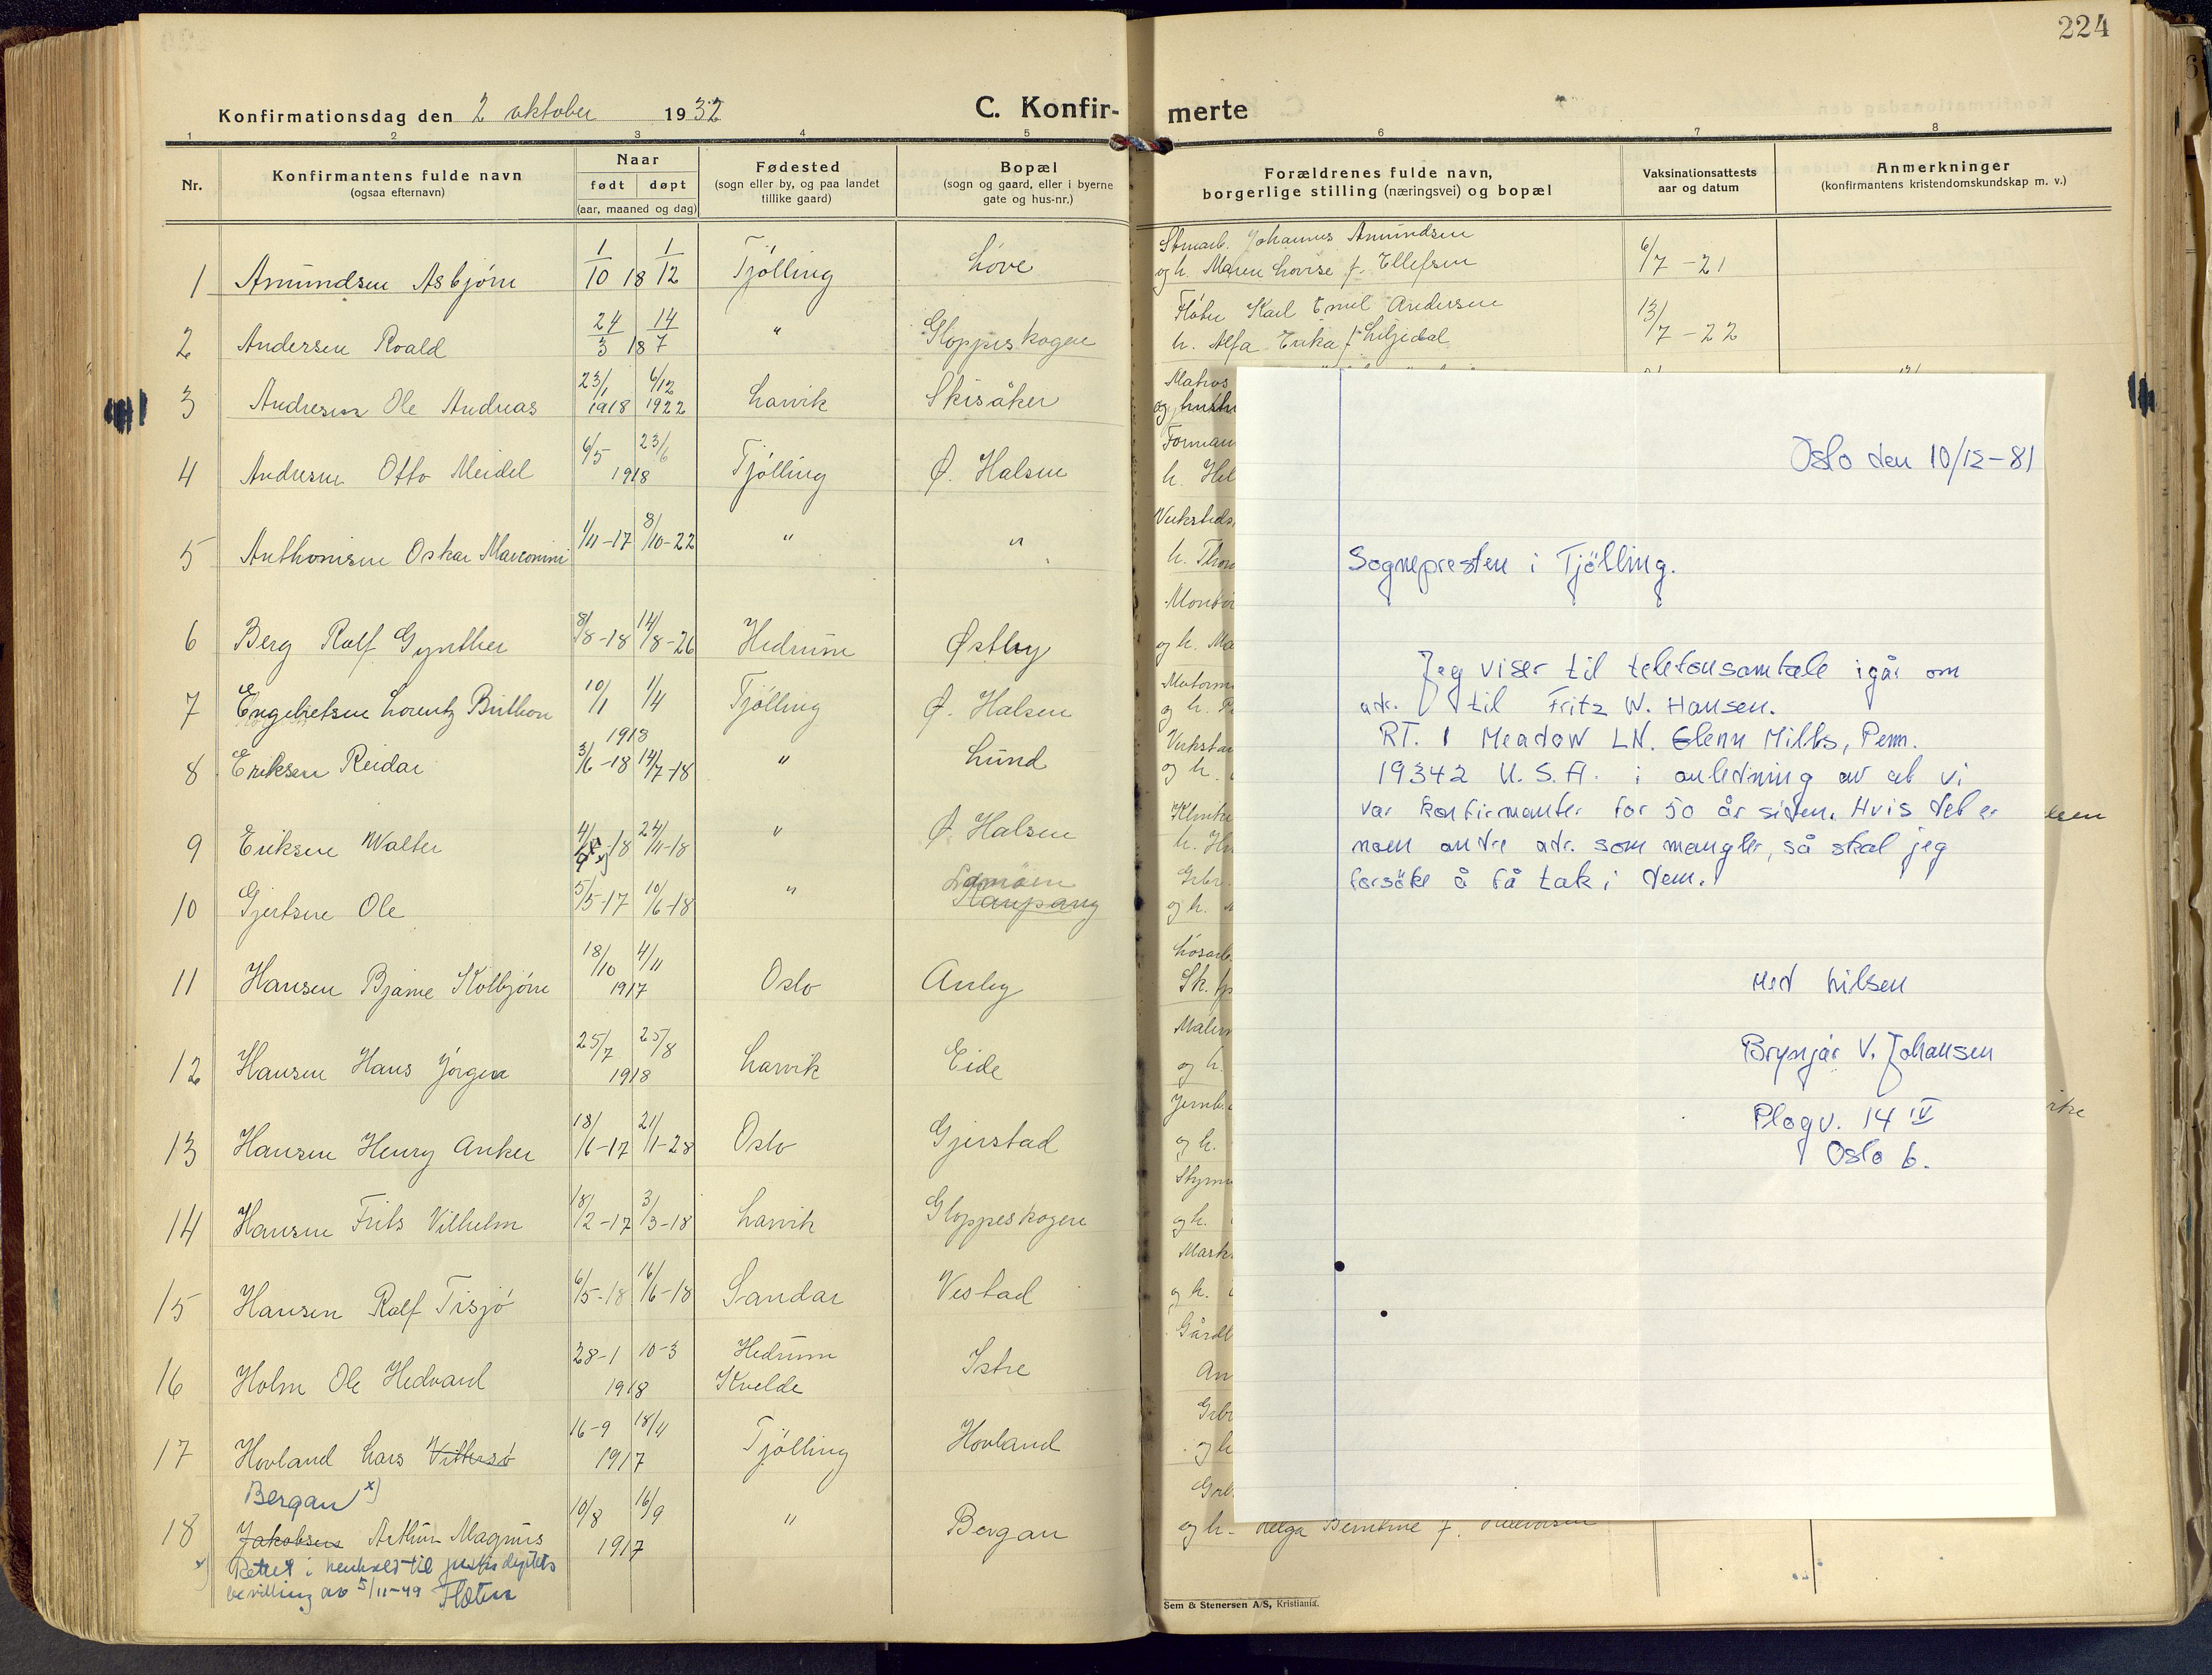 224
Konfirmationsdag den 2 oktober 1932
C. Konfir-
merte
1 2 3 4 5 6 7 8
Nr.
Konfirmantens fulde navn
(ogsaa efternavn)
Naar
født døpt
(aar, maaned og dag)
Fødested
(sogn eller by, og paa landet
tillike gaard)
Bopæl
(sogn og gaard, eller i byerne
gate og hus-nr.)
Forældrenes fulde navn,
borgerlige stilling (næringsvei) og bopæl
Vaksinationsattests
aar og datum
Anmerkninger
(konfirmantens kristendomskundskap m. v.)
1 Amundsen Asbjørn 1/10 18 1/12 Tjølling Løve
Johannes Amundsen
og h. Maren Lovise f. Ellefsen 6/7 -21
2 Andersen Roald 24/3 18 14/7 " Gloppeskogen
Karl Emil Andersen
h. Alfa Erika f. Liljedal 13/7 -22
3 Andresen Ole Andreas 23/1 1918 6/12 1922 Larvik Skisåker
Matros
4 Andresen Otto Meidel 6/5 23/6 1918 Tjølling Ø. Halsen
Forman
h. Hel
5 Anthonisen Oskar Marconini 1/11-17 8/10-22 " "
h. Thor
6 Berg Rolf Gynther 8/8-18 14/8-26 Hedrum Østby
og h. Ma
7 Engebretsen Lorentz Brithon 10/1 1/4 1918 Tjølling Ø. Halsen
8 Eriksen Reidar 3/6-18 14/7-18 " Lund
og h.
9 Eriksen Walter 4/9-18 24/11-18 " Ø. Halsen
10 Gjertsen Ole 5/5-17 10/6-18 " Lamøen
Kaupang
og h.
11 Hansen Bjarne Kolbjørn 18/10 4/11 1917 Oslo Auby
12 Hansen Hans Jørgen 25/7 25/8 1918 Larvik Eide
og h.
13 Hansen Henry Anker 18/6-17 21/1-28 Oslo Gjerstad
og h.
14 Hansen Frits Vilhelm 18/2-17 3/3-18 Larvik Gloppeskogen
og h.
15 Hansen Rolf Tisjø 6/5-18 16/6-18 Sandar Vestad
og h.
16 Holm Ole Hedvard 28-1 10-3 1918 Hedrum
Kvelde Istre
17 Hovland Lars Vittersø 16-9 18/11 1917 Tjølling Hovland
Bergan x)
18 Jakobsen Arthur Magnus 10/8 16/9 1917 " Bergan
og h. Helga Bentine f. Halvorsen
x) Rettet i henhold til justisdeptets
bevilling av 5/11-49 Fløtten
Sem & Stenersen A/S, Kristiania.
Oslo den 10/12-81
Sognepresten i Tjölling.
Jeg viser til telefonsamtale igår om
adr. til Fritz W. Hansen.
RT. 1 Meadow LN. Glenn Mills, Penn.
19342 U.S.A. i anledning av at vi
var konfirmanter for 50 år siden. Hvis det er
noen andre adr. som mangler, så skal jeg
forsöke å få tak i dem.
Med hilsen
Brynjar V. Johansen
Plogv. 14 IV
Oslo 6.